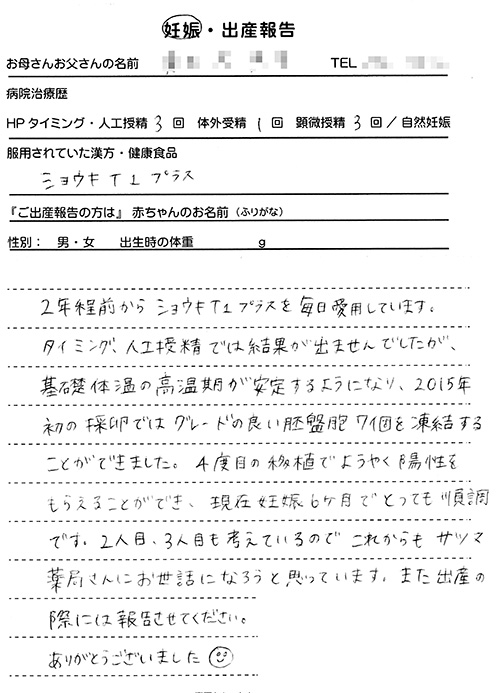 妊娠・出産報告
お母さんお父さんの名前 TEL
病院治療歴
HPタイミング・人工授精 3 回 体外受精 1 回 顕微授精 3 回/自然妊娠
服用されていた漢方・健康食品
ショウキT1プラス
『ご出産報告の方は』赤ちゃんのお名前(ふりがな)
性別: 男・女 出生時の体重 g
2年程前からショウキT1プラスを毎日愛用しています。
タイミング、人工授精では結果が出ませんでしたが、
基礎体温の高温期が安定するようになり、2015年
初の採卵ではグレードの良い胚盤胞7個を凍結する
ことができました。4度目の移植でようやく陽性を
もらえることができ、現在妊娠6ヶ月でとっても順調
です。2人目、3人目も考えているのでこれからもサツマ
薬局さんにお世話になろうと思っています。また出産の
際には報告させてください。
ありがとうございました